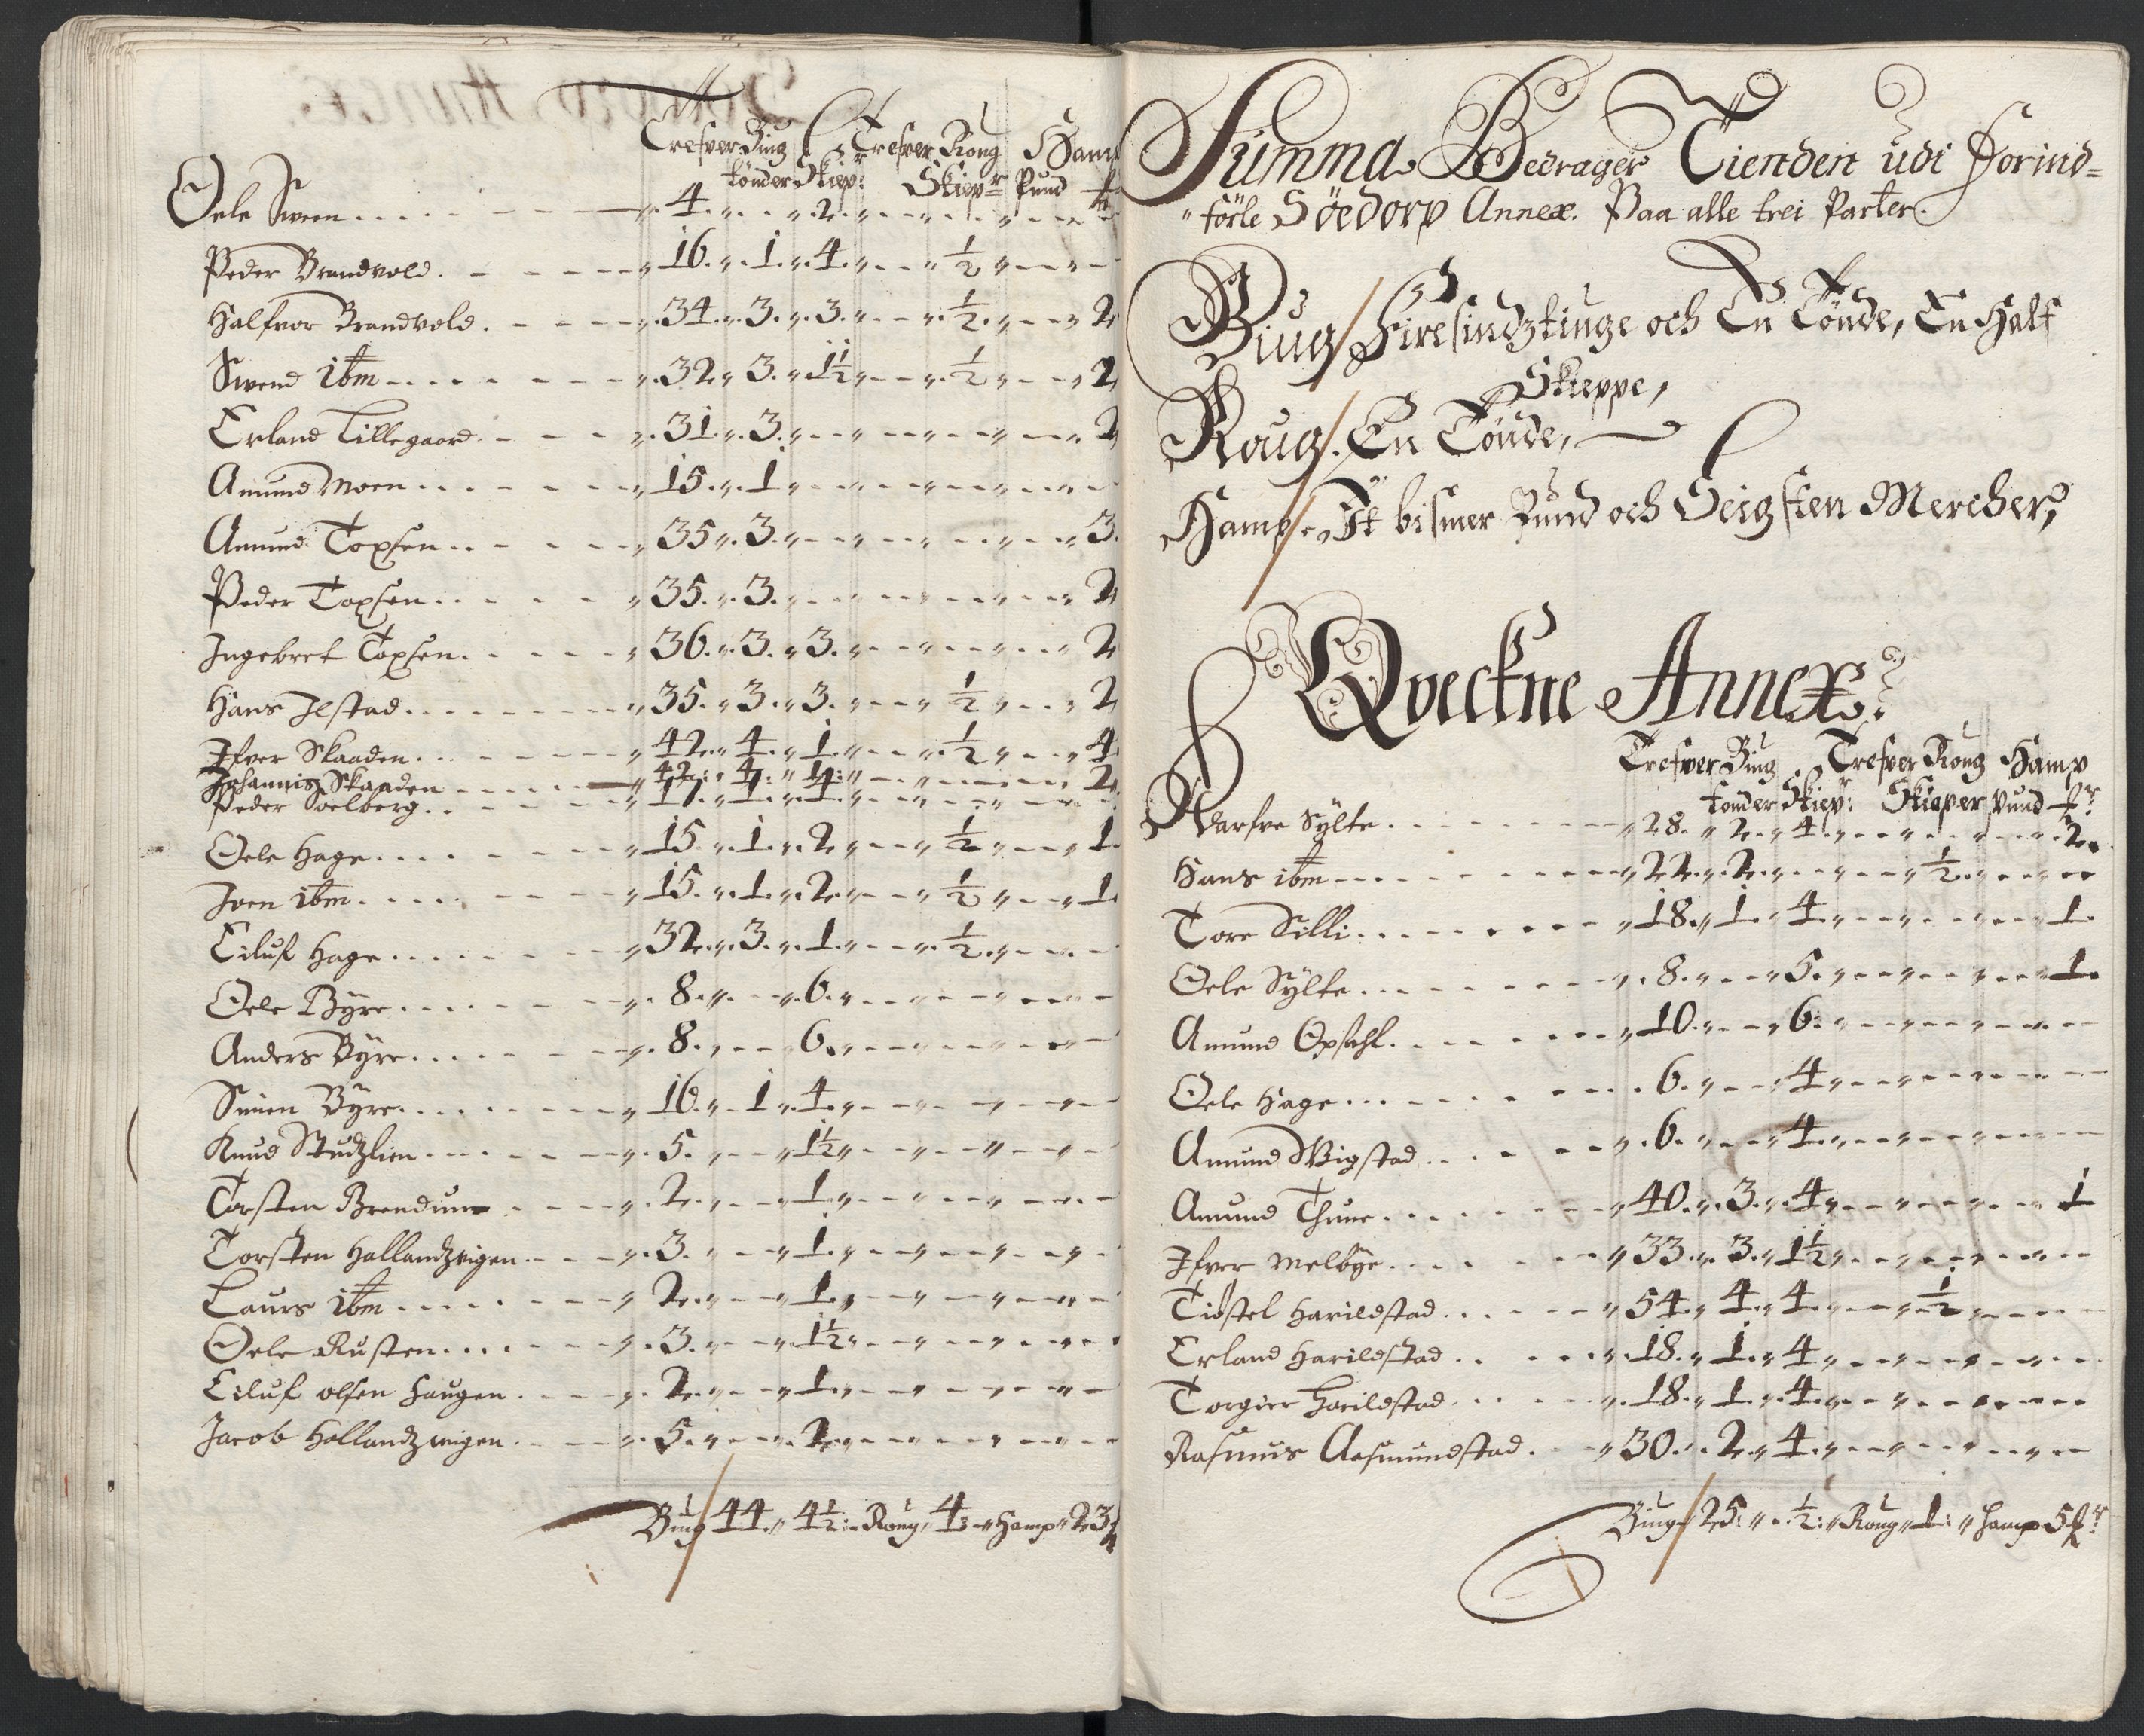 Trefver Biug Trefver Roug Hamp
tønder Skiepr: Skiepr Pund
Oele Sween 4 2
Peder Brandvold. 16. 1. 4. ½
Halfvor Brandvold. 34. 3. 3. ½ 2
Swend ibm 32. 3. 1½ ½ 2
Erland Lillegaard. 31. 3. 2
Amund Moen 15. 1
Amund Toxsen 35. 3. 3.
Peder Toxsen 35. 3. 2
Ingebret Toxsen. 36. 3. 3. 2
Hans Ilstad 35. 3. 3. ½ 2
Ifver Skaaden 42. 4. 1. ½ 4
Johannis Skaaden 42. 4. 1. 2
Peder Soelberg 17. 1. 4.
Oele Hage 15. 1. 2. ½ 1.
Joen ibm 15. 1. 2. ½ 1
Eiluf Hage 32. 3. 1. ½
Oele Byre 8. 6.
Anders Byre 8. 6.
Simen Byre 16. 1. 4.
Knud Studzlien 5. 1½
Torsten Brendum 2. 1.
Torsten Hallandzvigen 3. 1.
Laurs ibm 2. 1.
Oele Rusten 3. 1½
Eiluf olsen Haugen 2. 1.
Jacob Hollandzwigen 5. 2.
Biug 44. 4½: Roug, 4 Hamp 23
Summa Bedrager Tienden udi Forind=
förle Söedorp Annex. Paa alle trei Parter.
Biug Firesindztiuge och En Tönde, En Half
Skieppe,
Roug. En Tönde,
Hamp. It bismer Pund och Seigsten Mercher,
Qveckne Annex.
Trefver Biug Trefver Roug Hamp
tønder Skiep: Skieper pund
Narfve Sylte 28. 2. 4. 2.
Hans ibm 22. 2. ½
Tore Silli 18. 1. 4. 1.
Oele Sylte 8. 5. 1.
Amund Opsahl. 10. 6.
Oele Hage 6. 4
Amund Wigstad 6. 4.
Amund Thune 40. 3. 4 1
Ifver Melbye 33. 3. 1½
Tiostel Harildstad 54. 4. 4. ½
Erland Harildstad 18. 1. 4
Torgier Harildstad 18. 1. 4.
Rasmus Aasmundstad. 30. 2. 4.
Biug 25. ½: Roug 1: Hamp 5